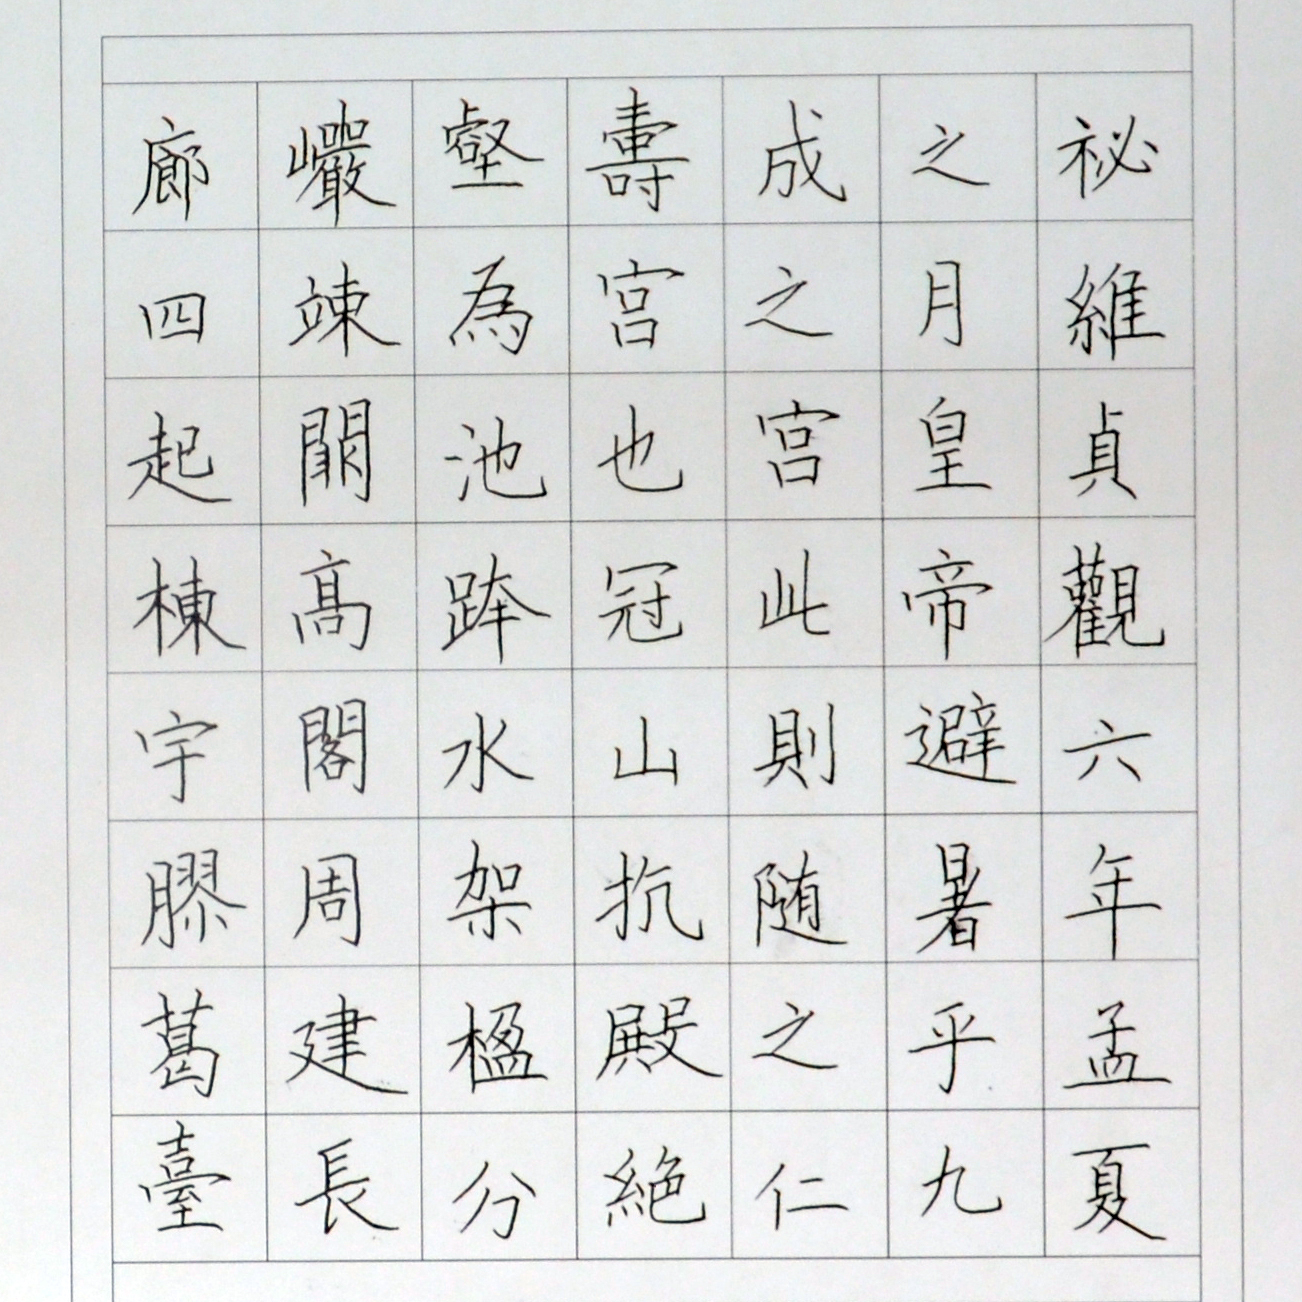 祕維貞觀六年孟夏
之月皇帝避暑乎九
成之宫此則随之仁
壽宫也冠山抗殿絶
壑為池跨水架楹分
巗竦闕髙閣周建長
廊四起棟宇膠葛臺